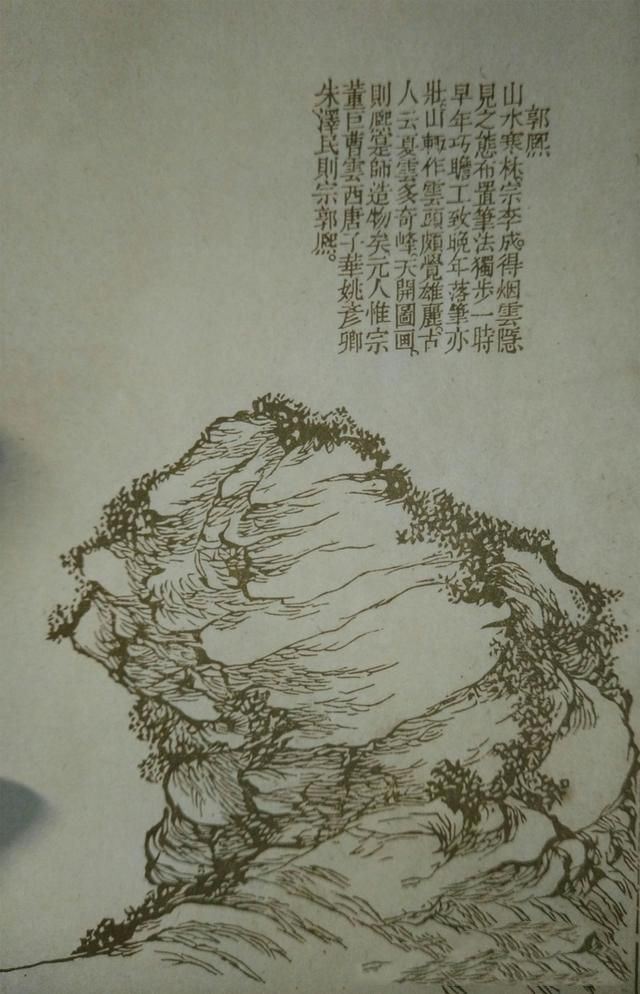 郭熙
山水寒林。宗李成。得烟雲隱
見之態。布置筆法獨步一時
早年巧贍工致晚年落筆亦
壯。山輒作雲頭頗覺雄麗。古
人云夏雲多奇峰。天開圖画。
則熙是師造物矣元人惟宗
董巨曹雲西唐子華姚彥卿
朱澤民則宗郭熙。